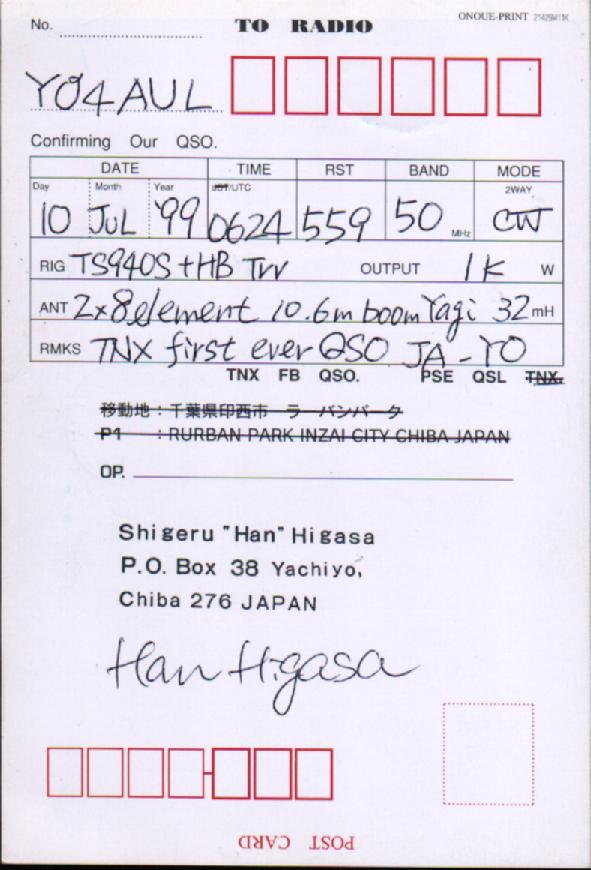 No. TO RADIO ONOUE-PRINT
YO4AUL
Confirming Our QSO.
DATE TIME RST BAND MODE
Day Month Year JST/UTC 2WAY
10 JUL '99 0624 559 50 MHz CW
RIG TS940S+HB Trv OUTPUT 1K W
ANT 2x8element 10.6m boom Yagi 32 mH
RMKS TNX first ever QSO JA-YO
TNX FB QSO. PSE QSL TNX.
移動地：千葉県印西市 ラーバンパーク
P1 : RURBAN PARK INZAI CITY CHIBA JAPAN
OP.
Shigeru "Han" Higasa
P.O. Box 38 Yachiyo,
Chiba 276 JAPAN
Han Higasa
POST CARD